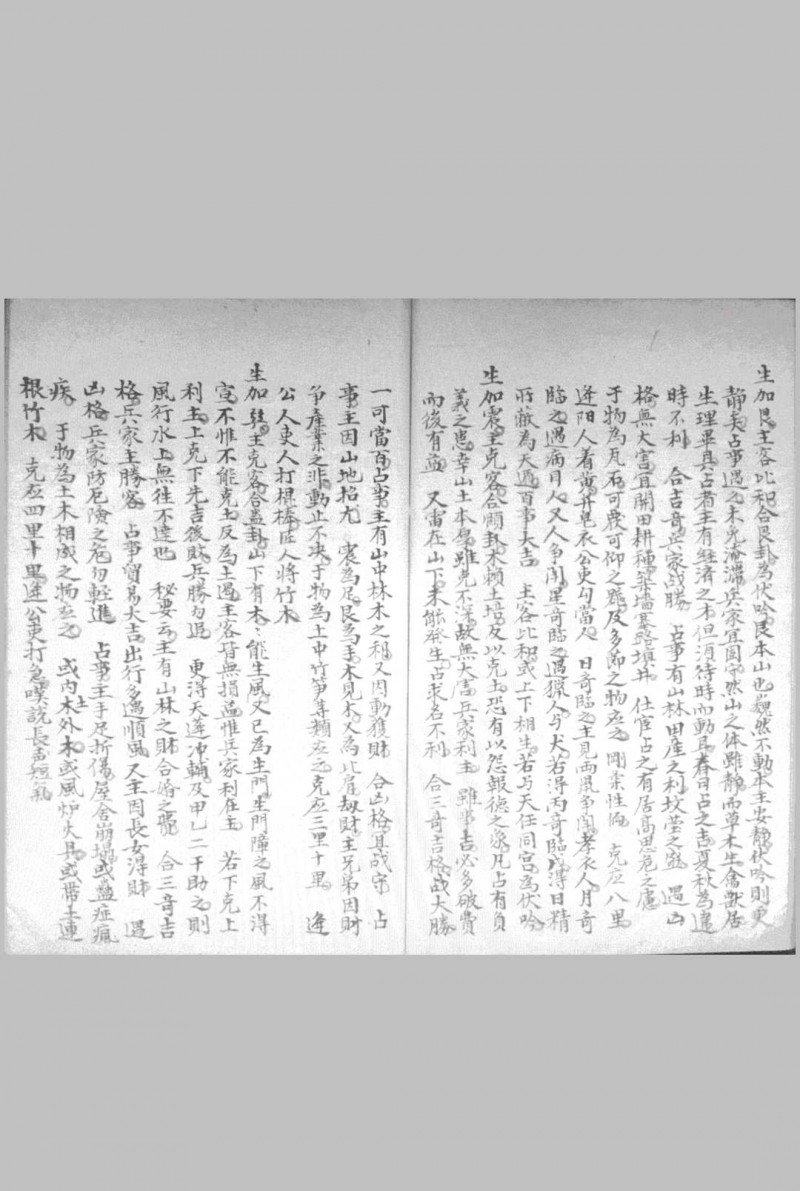 生加艮主客比和合艮卦為伏吟艮本山也巍然不動本主安静伏吟則更
静矣占事遇之未免淹滞兵家宜固守然山之体雖静而草木生禽獸居
生理畢具占者主有経濟之才但消待時而動且春日占之吉夏秋為遑
時不利 合吉奇兵家战勝 占事有山林田産之利坟茔之 遇凶
格無大富宜開田耕種築墙塞路填井 仕宦占之有居高思危之慮
于物為瓦石可農可仰之 及多節之物应之 剛柔性 克应八里
逢阳人着黄并皂衣公吏勾當人 日奇臨之主見両鼠争闘孝衣人月奇
臨之遇病目人又人争闘星奇臨之遇獵人与犬若得丙奇臨 得日精
所蔽為天遇百事大吉 主客比和或上下相生若与天任同宫為伏吟
生加震主克客合頤卦木頼土培反以克土恐有以怨報德之象凡占有負
義之患幸山土本厚雖克不深故無大害兵家利主 雖事吉必多破費
而後有益 又雷在山下未能發生占求名不利 合三奇吉格战大勝
一可當百占事主有山中林木之利又因動獲財 合凶格宜战守 占
事主因山地招尤 震為足艮為手木見木又為比肩刧財主兄弟因財
争産業之非動止不决于物為土中竹笋等類应之克应三里十里 逢
公人吏人打棍棒匠人將竹木
生加巽主克客合蠱卦山下有木木能生風又已為生門生門障之風不得
宣不惟不能克土反為土遏主客皆無損益惟兵家利在主 若下克上
利主上克下先吉後財兵勝勿追 更得天蓬冲輔及甲乙二干助之則
風行水上無往不達也 秘要云主有山林之財合婚之 合三奇吉
格兵家主勝客 占事貿易大吉出行多遇順風又主因長女得財 遇
凶格兵家防厄險之危勿輕進 占事主手足折傷屋舍崩塌或蠱症瘋
疾 于物為土木相成之物应之 或内土外木或風炉火具或帶土連
根竹木 克应四里十里逢公吏打急嘆說長盂短氣